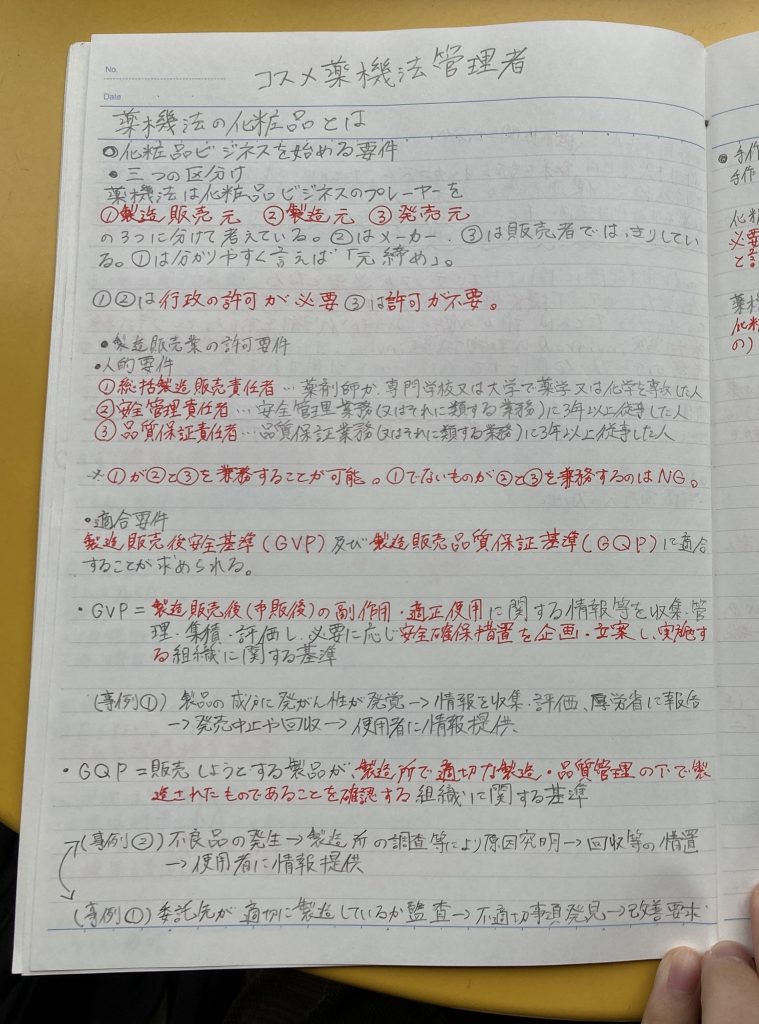 No.
Date
コスメ薬機法管理者
薬機法の化粧品とは
○化粧品ビジネスを始める要件
・三つの区分け
薬機法は化粧品ビジネスのプレーヤーを
①製造販売元 ②製造元 ③発売元
の3つに分けて考えている。②はメーカー、③は販売者ではっきりしてい
る。①は分かりやすく言えば「元締め」。
①②は行政の許可が必要③は許可が不要。
・製造販売業の許可要件
・人的要件
①総括製造販売責任者…薬剤師か、専門学校又は大学で薬学又は化学を専攻した人
②安全管理責任者…安全管理業務(又はそれに類する業務)に3年以上従事した人
③品質保証責任者…品質保証業務(又はそれに類する業務)に3年以上従事した人
※①が②と③を兼務することが可能。①でないものが②と③を兼務するのはNG。
・適合要件
製造販売後安全基準(GVP)及び製造販売品質保証基準(GQP)に適合
することが求められる。
・GVP=製造販売後(市販後)の副作用・適正使用に関する情報等を収集・管
理・集積・評価し、必要に応じ安全確保措置を企画・立案し、実施す
る組織に関する基準
(事例①) 製品の成分に発がん性が発覚→情報を収集・評価、厚労省に報告
→発売中止や回収→使用者に情報提供
・GQP=販売しようとする製品が、製造所で適切な製造・品質管理の下で製
造されたものであることを確認する組織に関する基準
(事例②)不良品の発生→製造所の調査等により原因究明→回収等の措置
→使用者に情報提供
(事例①)委託先が適切に製造しているか監査→不適切事項発見→改善要求
手作
手作
化粧
必要
と言
薬機
化粧
の)